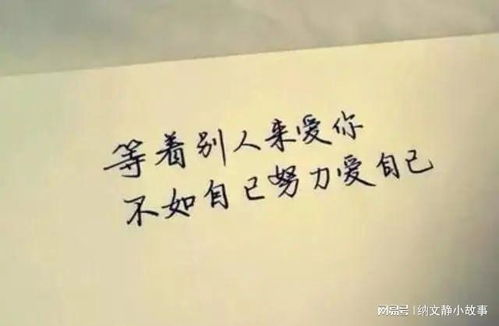 等着别人来爱你
不如自己努力爱自己
网易号 | 纳文静小故事